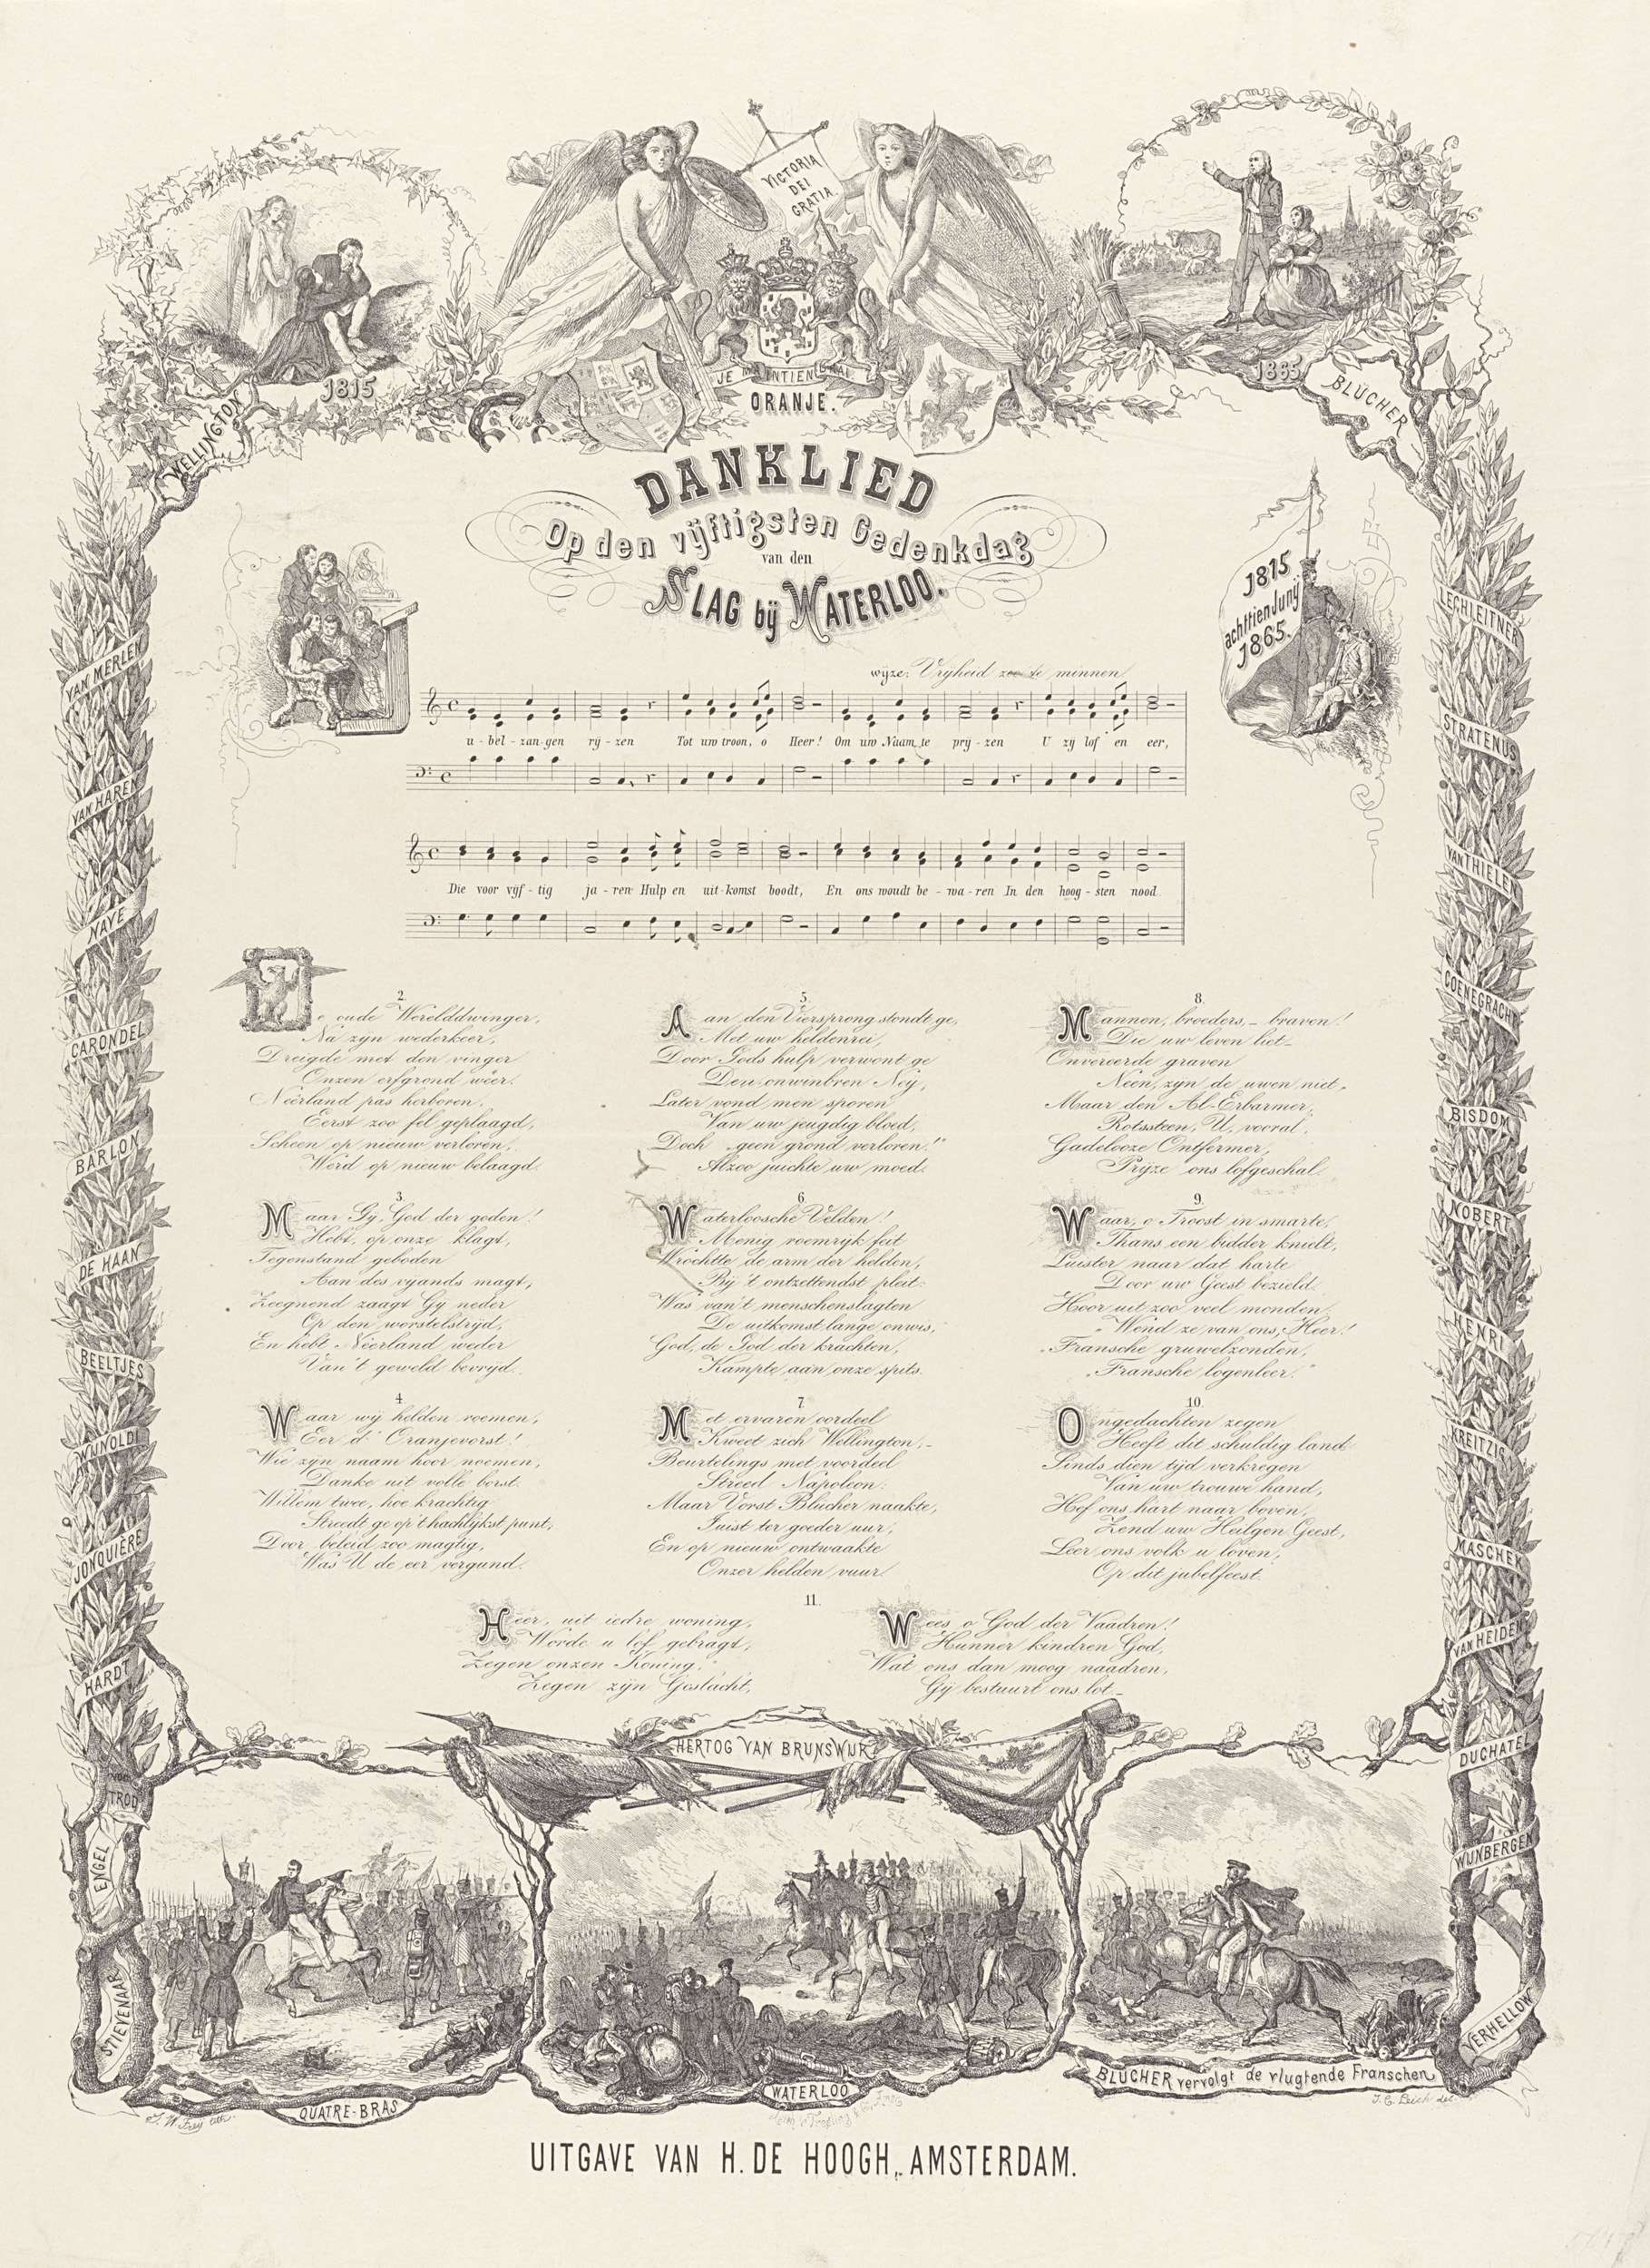 VICTORIA
DEI
GRATIA
JE MAINTIENDRAI
ORANJE.
1815
1865
WELLINGTON
BLÜCHER
DANKLIED
Op den vijftigsten Gedenkdag
van den
SLAG bij WATERLOO.
1815
achttien Junij
1865.
wijze: Vrijheid zoo te minnen
u-bel-zan-gen rij-zen Tot uw troon, o Heer! Om uw Naam te prij-zen U zij lof en eer,
Die voor vijf-tig ja-ren Hulp en uit-komst boodt, En ons woudt be-wa-ren In den hoog-sten nood.
2.
De oude Werelddwinger,
Na zyn wederkeer,
Dreigde met den vinger
Onzen erfgrond wêer.
Neêrland pas herboren,
Eerst zoo fel geplaagd,
Scheen op nieuw verloren,
Werd op nieuw belaagd.
3.
Maar Gy, God der goden!
Hebt, op onze klagt,
Tegenstand geboden
Aan des vyands magt,
Zeegnend zaagt Gy neder
Op den worstelstrijd,
En hebt Neêrland weder
Van 't geweld bevrijd.
4.
Waar wij helden roemen,
Eer d' Oranjevorst!
Wie zyn naam hoor noemen,
Danke uit volle borst.
Willem twee, hoe krachtig
Streedt ge op 't hachlijkst punt,
Door beleid zoo magtig,
Was U de eer vergund.
5.
Aan den Viersprong stondt ge,
Met uw heldenrei,
Door Gods hulp verwont ge
Den onwinbren Neij,
Later vond men sporen
Van uw jeugdig bloed,
Doch „geen grond verloren!"
Alzoo juichte uw moed.
6.
Waterloosche Velden!
Menig roemrijk feit
Wrochtte de arm der helden,
Bij 't ontzettendst pleit:
Was van 't menschenslagten
De uitkomst lange onwis,
God, de God der krachten,
Kampte aan onze spits.
7.
Met ervaren oordeel
Kweet zich Wellington,-
Beurtelings met voordeel
Streed Napoleon:
Maar Vorst Blücher naakte,
Juist ter goeder uur,
En op nieuw ontwaakte
Onzer helden vuur.
8.
Mannen, broeders,- braven!
Die uw leven liet-
Onvereerde graven
Neen, zijn de uwen niet,
Maar den Al-Erbarmer,
Rotssteen, U, vooral,
Gadelooze Ontfermer,
Prijze ons lofgeschal.
9.
Waar, o Troost in smarte,
Thans een bidder knielt,
Luister naar dat harte
Door uw Geest bezield.
Hoor uit zoo veel monden
„Wend ze van ons, Heer!
„Fransche gruwelzonden,
„Fransche logenleer."
10.
Ongedachten zegen
Heeft dit schuldig land
Sinds dien tijd verkregen
Van uw trouwe hand,
Hef ons hart naar boven,
Zend uw Heilgen Geest,
Leer ons volk u loven,
Op dit jubelfeest.
11.
Heer, uit iedre woning,
Worde u lof gebragt,
Zegen onzen Koning,
Zegen zijn Geslacht,
Wees o God der Vaadren!
Hunner kindren God,
Wat ons dan moog naadren,
Gij bestuurt ons lot-
VAN MERLEN
VAN HAREN
NAVE
CARONDEL
BARLON
DE HAAN
BEELTJES
WIJNOLDI
JONQUIÈRE
HARDT
TROD
ENGEL
STIEVENAAR
LECHLEITNER
STRATENUS
VAN THIELEN
COENEGRACHT
BISDOM
NOBERT
HENRI
KREITZIG
MASCHEK
VAN HEIDEN
DUCHATEL
WIJNBERGEN
VERHELLOW
HERTOG VAN BRUNSWIJK
QUATRE-BRAS
WATERLOO
BLÜCHER vervolgt de vlugtende Franschen
J. W. Frey lith.
UITGAVE VAN H. DE HOOGH, AMSTERDAM.